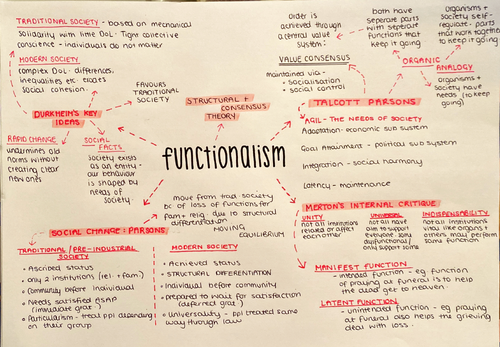 TRADITIONAL SOCIETY - based on mechanical
solidarity with little DoL. Tight collective
conscience - individuals do not matter
MODERN SOCIETY
complex DoL - differences,
inequalities etc - erodes
social cohesion.
FAVOURS
TRADITIONAL
SOCIETY
DURKHEIM'S KEY
IDEAS
RAPID CHANGE
undermines old
norms without
creating clear
new ones
SOCIAL
FACTS
Society exists
as an entity -
our behaviour
is shaped by
needs of
society
STRUCTURAL +
CONSENSUS
THEORY
functionalism
order is
achieved through
a central value
system:
VALUE CONSENSUS
maintained via -
• socialisation
• social control
both have
seperate parts
with seperate
functions that
keep it going
organisms +
society self-
regulate - parts
that work together
to keep it going
ORGANIC
ANALOGY
organisms +
society have
needs (to keep
going)
TALCOTT PARSONS
AGIL - THE NEEDS OF SOCIETY
Adaptation - economic sub system
Goal Attainment - political sub system
Integration - social harmony
Latency - maintenance
SOCIAL CHANGE: PARSONS
move from trad. society
bc of loss of functions for
fam + relig due to structural
differentiation
MOVING
EQUILIBRIUM
TRADITIONAL / PRE-INDUSTRIAL
SOCIETY
• Ascribed status
• only 2 institutions (rel. + fam.)
• Community before individual
• Needs satisfied ASAP
(immediate grat.)
• Particularism - treat ppl depending
on their group
MODERN SOCIETY
• Achieved status
• STRUCTURAL DIFFERENTIATION
• Individual before community
• prepared to wait for satisfaction
(deferred grat.)
• Universality - ppl treated same
way through law
MERTON'S INTERNAL CRITIQUE
UNITY
not all institutions
related or affect
each other
UNIVERSAL
not all have
aim to support
everyone - some
dysfunctional /
only support some
INDISPENSABILITY
not all institutions
vital like organs +
others may perform
same function
MANIFEST FUNCTION
- intended function - eg function
of praying at funeral is to help
the dead get to heaven
LATENT FUNCTION
- unintended function - eg praying
at funeral also helps the grieving
deal with loss.